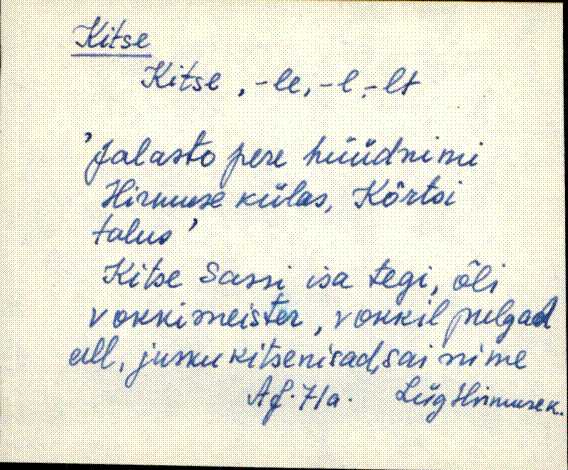 Kitse
Kitse, -le, -l, -lt
'Jalasto pere hüüdnimi
Hirmuse külas, Kõrtsi
talus'
Kitse Sassi isa tegi, õli
vokkimeister, vokkil pulgad
all, jusku kitsenisad, sai nime
Af. 71a. Lüg Hirmuse k.